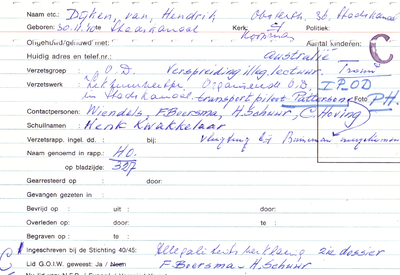 Naam etc.: Dijken, van, Hendrik Oosterstr. 36. Stadskanaal
Geboren: 30.11.'10 te: Stadskanaal Kerk: Politiek:
Ongehuwd/gehuwd met: Korteman Aantal kinderen: C
Huidig adres en telef.nr.: Australië
Verzetsgroep : O.D. Verspreiding illeg. lectuur. Trouw
Verzetswerk : Organiseerde O.D. IPOD
in Stadskanaal. transport piloot Patterson Foto PH.
Contactpersonen: Wiendels, F. Beersma, H. Schuur, C. Hoving
Schuilnamen : Henk Kwakkelaar
Verzetsrapp. ingel. dd.: bij:
Naam genoemd in rapp.: HO.
op bladzijde: 327
Gearresteerd op : door:
Gevangen gezeten in :
Bevrijd op : uit : door:
Overleden op: door: te :
Begraven op : te :
Ingeschreven bij de Stichting 40/45: Illegaliteitsverklaring zie dossier
Lid G.O.I.W. geweest: Ja / Neen F. Beersma - H. Schuur